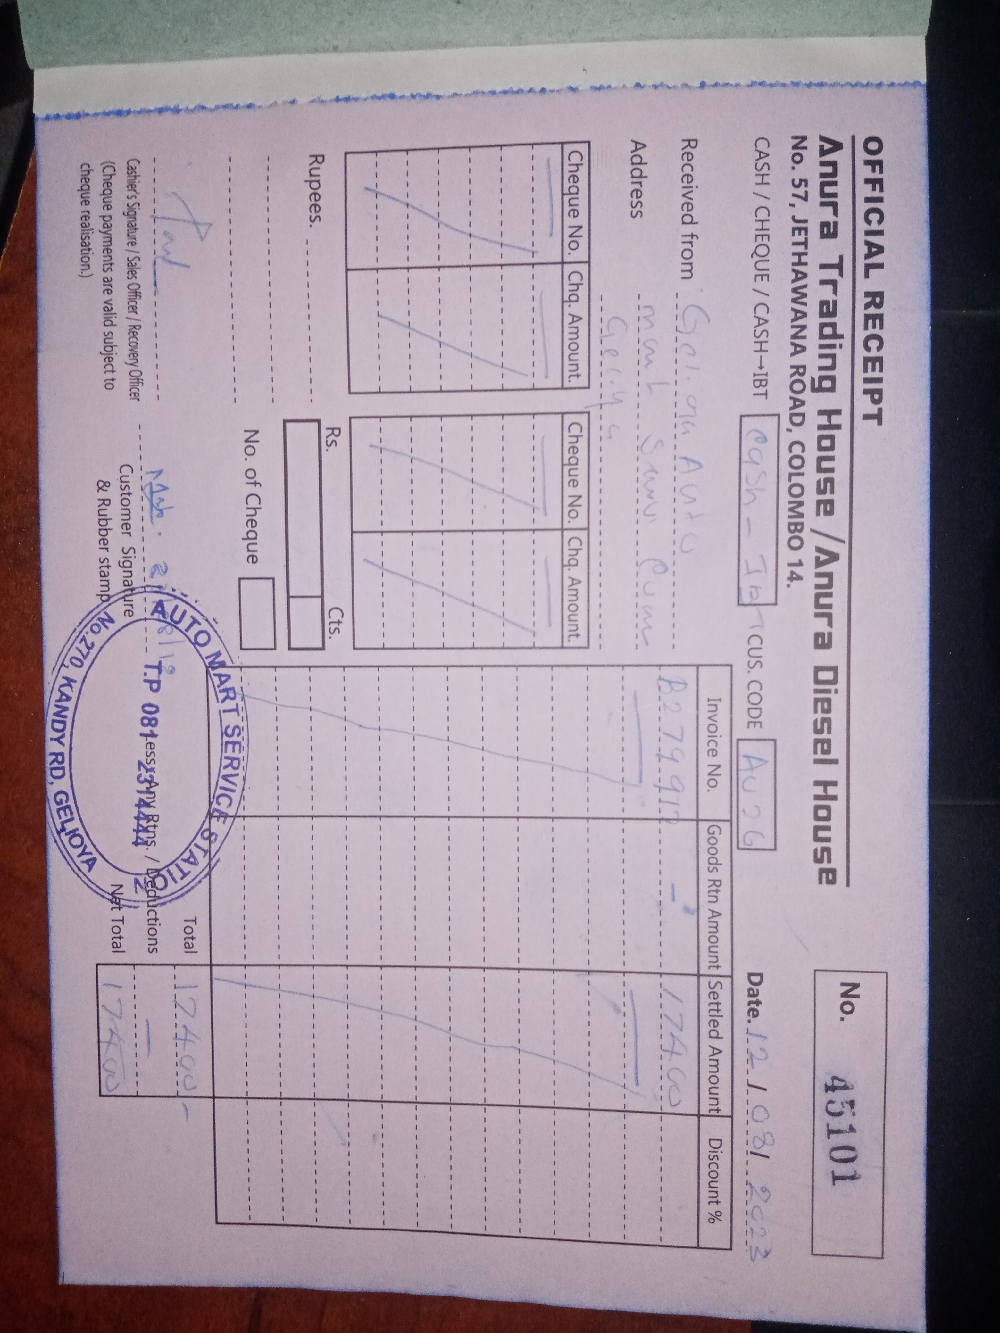 OFFICIAL RECEIPT
Anura Trading House / Anura Diesel House
No. 57, JETHAWANA ROAD, COLOMBO 14.
No. 45101
CASH / CHEQUE / CASH→IBT Cash - CUS. CODE AU26 Date. 12 / 08 / 2023
Received from Auto
Address
Cheque No. Chq. Amount. Cheque No. Chq. Amount.
Invoice No. Goods Rtn Amount Settled Amount Discount %
B279912 - 17400
Rupees. Rs. Cts.
No. of Cheque
Total 17400/-
Less: Any Rtns. / Deductions —
Net Total 17400
Cashier's Signature / Sales Officer / Recovery Officer
(Cheque payments are valid subject to
cheque realisation.)
Customer Signature
& Rubber stamp
AUTO MART SERVICE STATIO
T.P 081-2314444
No.270, KANDY RD, GELIOYA